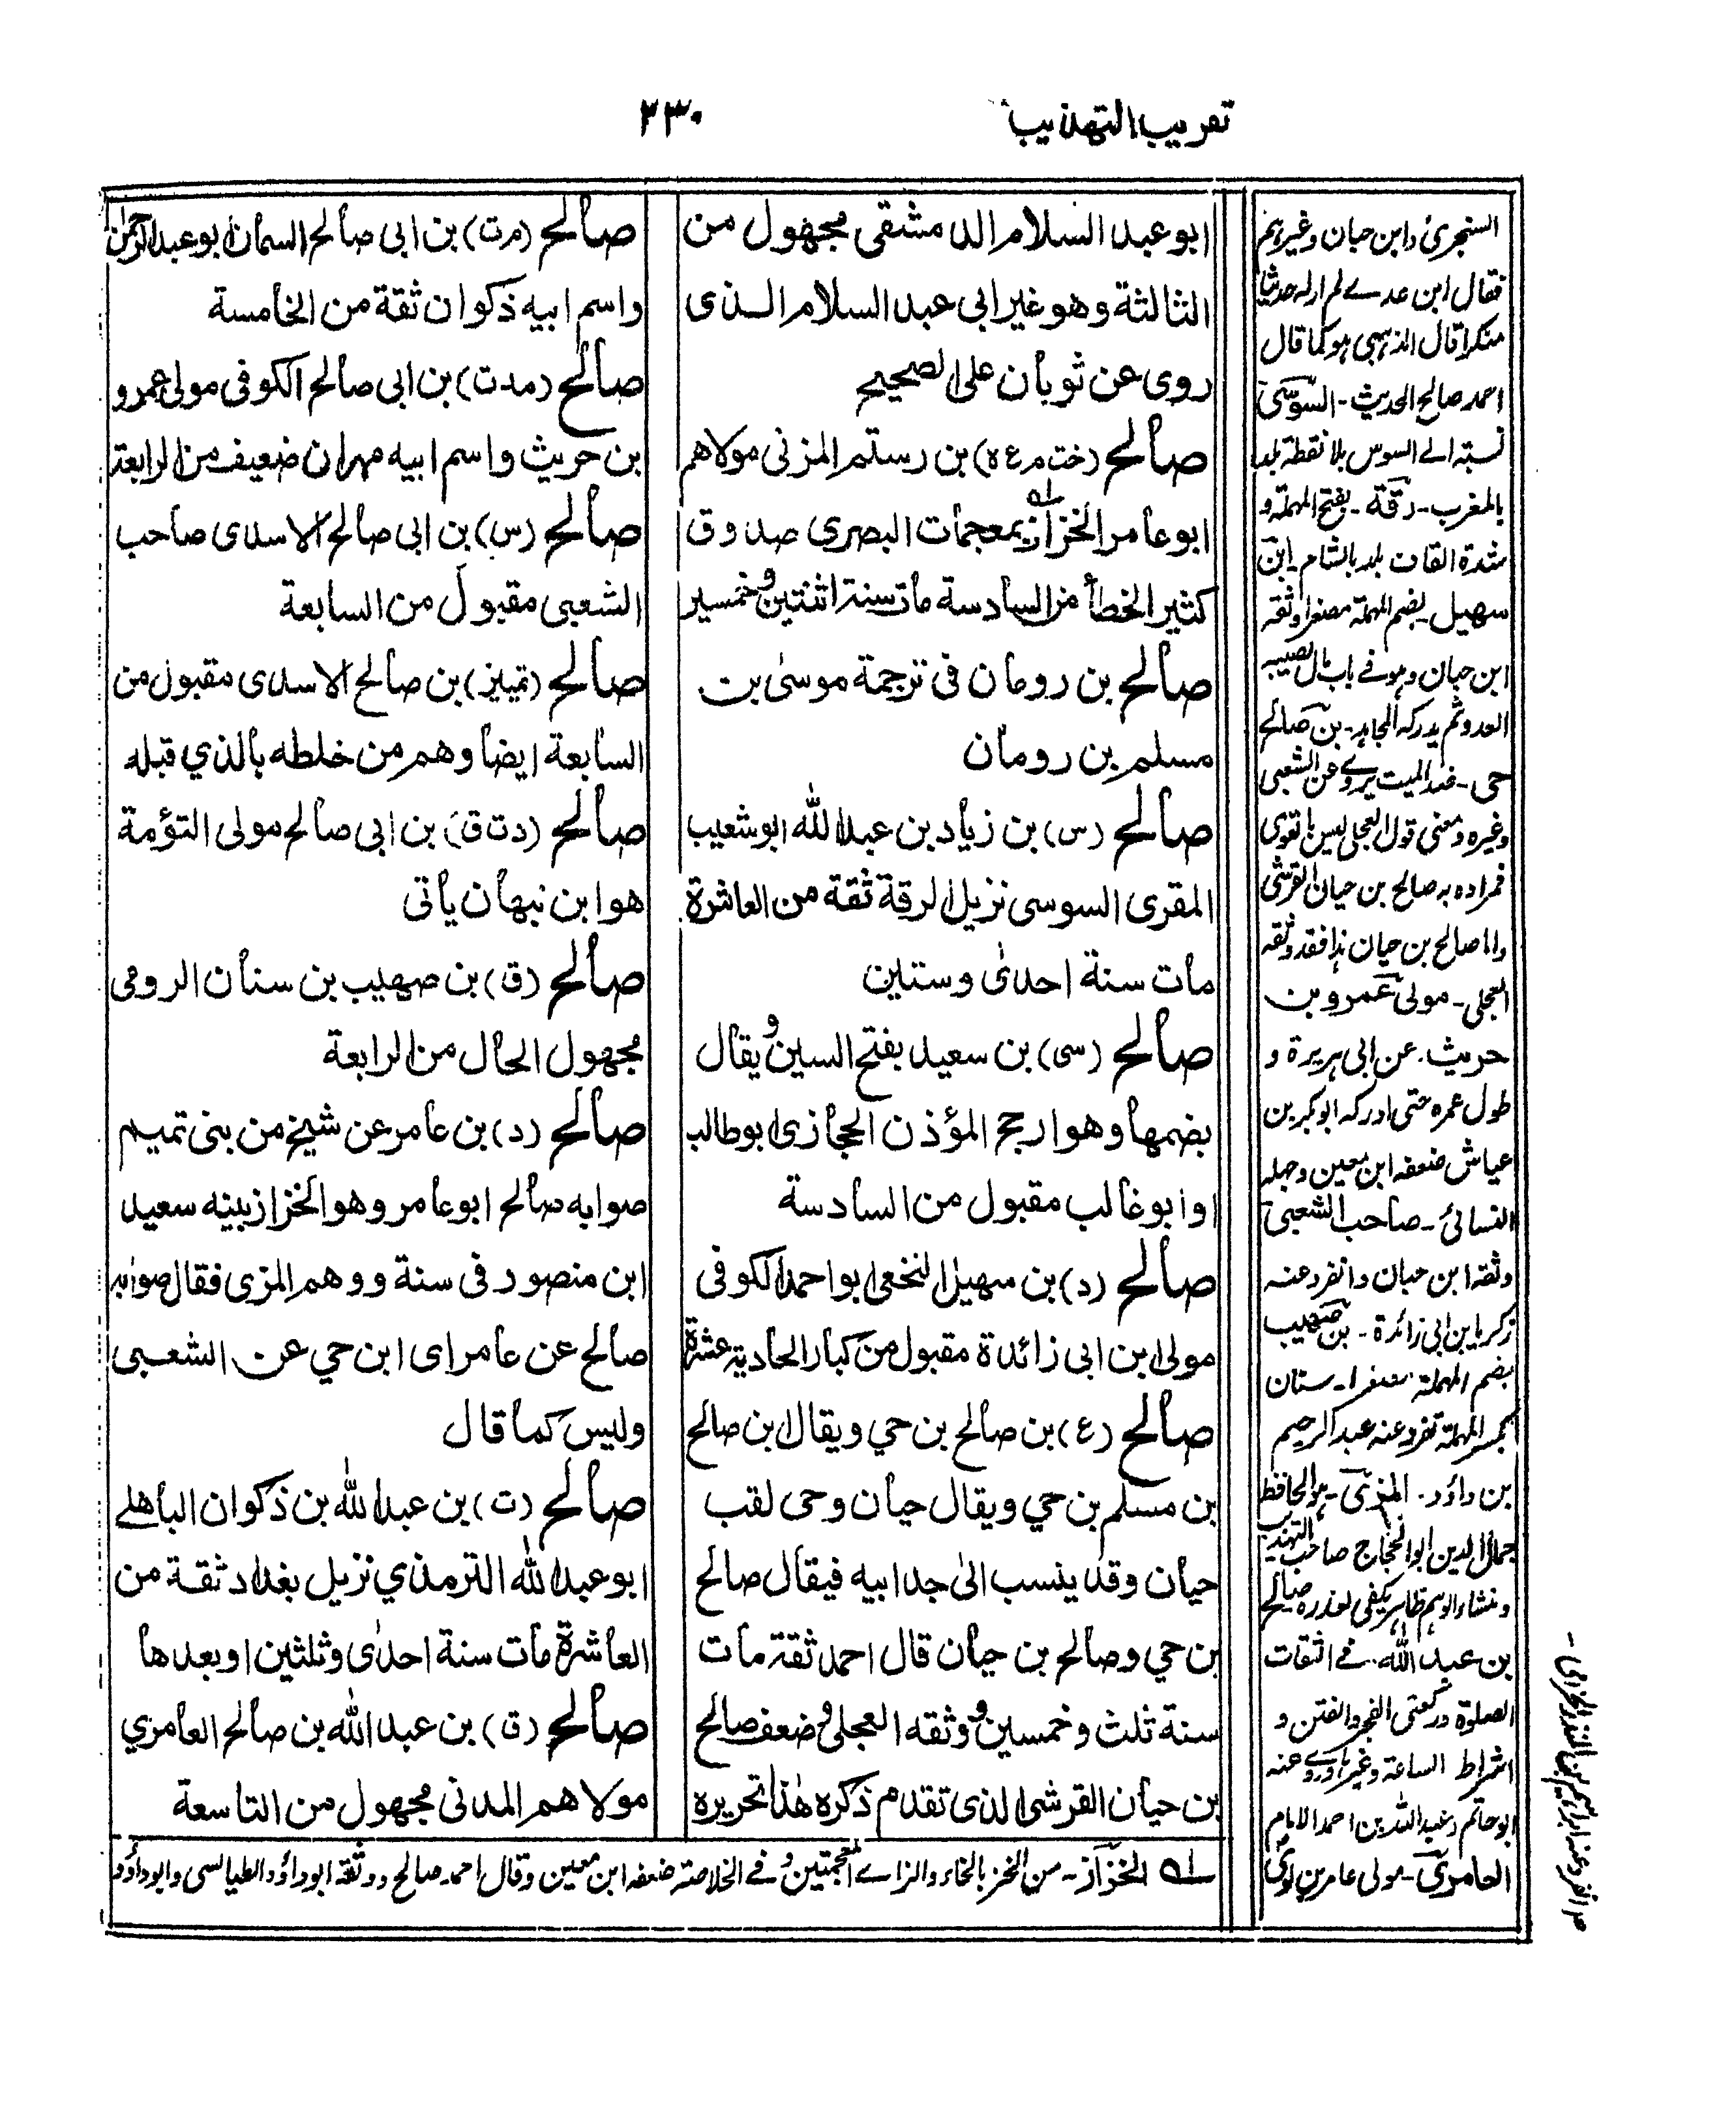 تقريب التهذيب
٢٣٠
ابو عبد السلام الدمشقى مجهول من
الثالثة وهو غير ابى عبد السلام الذى
روى عن ثوبان على الصحيح
صالح (خت م ع ه) بن رستم المزنى مولاهم
ابو عامر الخزاز له بمعجمات البصرى صدوق
كثير الخطأ من السادسة مات سنة اثنتين وخمسير
صالح بن رومان فى ترجمة موسى بن
مسلم بن رومان
صالح (س) بن زياد بن عبد الله ابو شعيب
المقرى السوسى نزيل الرقة ثقة من العاشرة
مات سنة احدى وستين
صالح (سى) بن سعيد بفتح السين ويقال
بضمها وهو ارجح المؤذن الحجازى ابو طالب
او ابو غالب مقبول من السادسة
صالح (د) بن سهيل النخعى ابو احمد الكوفى
مولى ابن ابى زائدة مقبول من كبار الحادية عشرة
صالح (ع) بن صالح بن حي ويقال ابن صالح
بن مسلم بن حي ويقال حيان وحى لقب
حيان وقد ينسب الى جد ابيه فيقال صالح
بن حي وصالح بن حيان قال احمد ثقة مات
سنة ثلث وخمسين و وثقه العجلى و ضعف صالح
بن حيان القرشى الذى تقدم ذكره هذا تحريره
صالح (مرت) بن ابى صالح السمان ابو عبد الرحمن
واسم ابيه ذكوان ثقة من الخامسة
صالح (مدت) بن ابى صالح الكوفى مولى عمرو
بن حريث واسم ابيه مهران ضعيف من الرابعة
صالح (س) بن ابى صالح الاسدى صاحب
الشعبى مقبول من السابعة
صالح (تمييز) بن صالح الاسدى مقبول من
السابعة ايضا وهم من خلطه بالذي قبله
صالح (دت ق) بن ابى صالح مولى التؤمة
هو ابن نبهان يأتى
صالح (ق) بن صهيب بن سنان الرومى
مجهول الحال من الرابعة
صالح (د) بن عامر عن شيخ من بنى تميم
صوابه صالح ابو عامر وهو الخزاز بينه سعيد
ابن منصور فى سنة و وهم المزى فقال صوابه
صالح عن عامر اى ابن حي عن الشعبى
وليس كما قال
صالح (ت) بن عبد الله بن ذكوان الباهلے
ابو عبد الله الترمذي نزيل بغداد ثقة من
العاشرة مات سنة احدى وثلثين او بعدها
صالح (ق) بن عبد الله بن صالح العامري
مولاهم المدنى مجهول من التاسعة
السنجرى وابن حبان وغيرہم
فقال ابن عدے لم ار له حديثا
منكرا قال الذہبى ہو كما قال
احمد صالح الحديث - السوسى
نسبته الے السوس بلا نقطة بلد
بالمغرب - رقة - بفتح المهملة و
شدة القاف بلد بالشام - ابن
سهيل - بضم المهملة مصغرا وثقه
ابن حبان وہو فے باب مال يصيبه
العدو ثم يدركه المجاہد - بن صالح
حى - عند الميت يروے عن الشعبى
وغيره ومعنى قول العجلى ليس بالقوى
فمراده به صالح بن حيان القرشى
واما صالح بن حيان ہذا فقد وثقه
العجلى - مولى عمرو بن
حريث - عن ابى ہريرة و
طول عمره حتى ادركه ابو بكر بن
عياش ضعفه ابن معين وجهله
النسائى - صاحب الشعبى
وثقه ابن حبان وانفرد عنه
زكريا بن ابى زائدة - بن صهيب
بضم المهملة مصغرا - سنان
بكسر المهملة تفرد عنه عبد الرحيم
بن داؤد - المزى - ہو الحافظ
جمال الدين ابو الحجاج صاحب التهذيب
ومنشاء الوہم ظاہر يكفى لعذره صالح
بن عبد الله - فے الثقات
الصلوة وركعتى الفجر والفتن و
اشراط الساعة وغيرہا روے عنه
ابو حاتم وعبد الله بن احمد الامام
العامرى - مولى عامر بن لوى
له الخزاز - من الخز بالخاء والزاے المعجمتين و فے الخلاصة ضعفه ابن معين وقال احمد صالح ووثقه ابو داؤد الطيالسى وابو داؤد